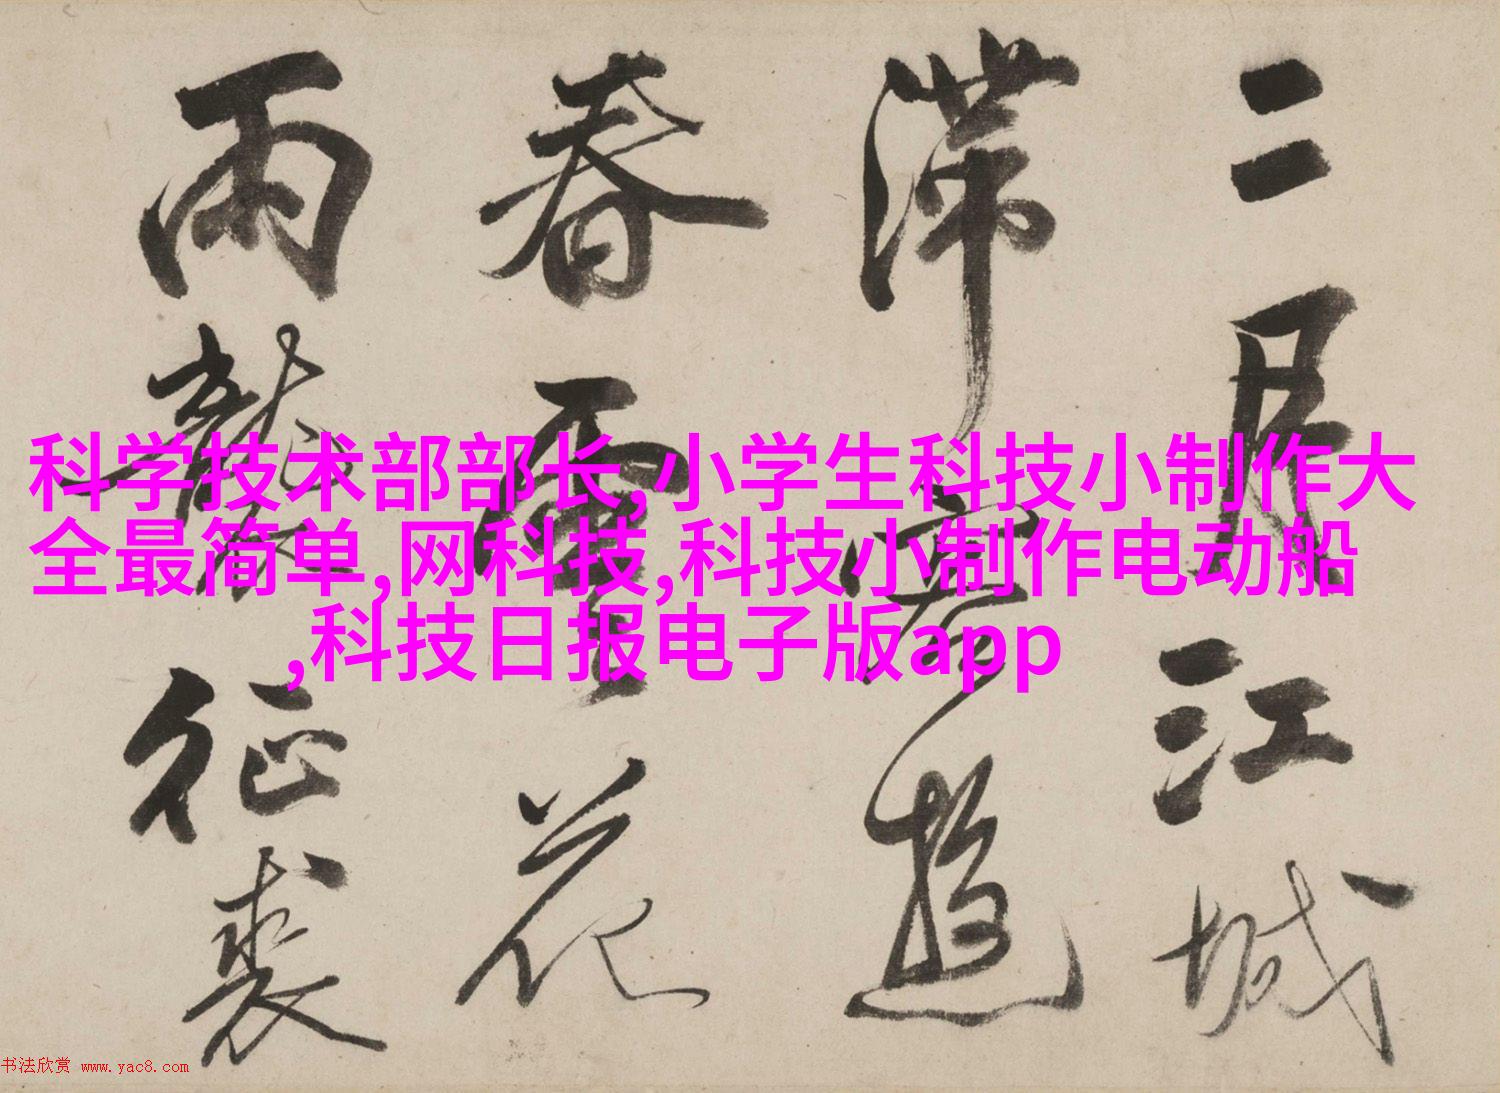 二月江城
滞客遊
春雲花
雨襲征裘
科学技术部部长,小学生科技小制作大
全最简单,网科技,科技小制作电动船
,科技日报电子版app
书法欣赏 www.yac8.com